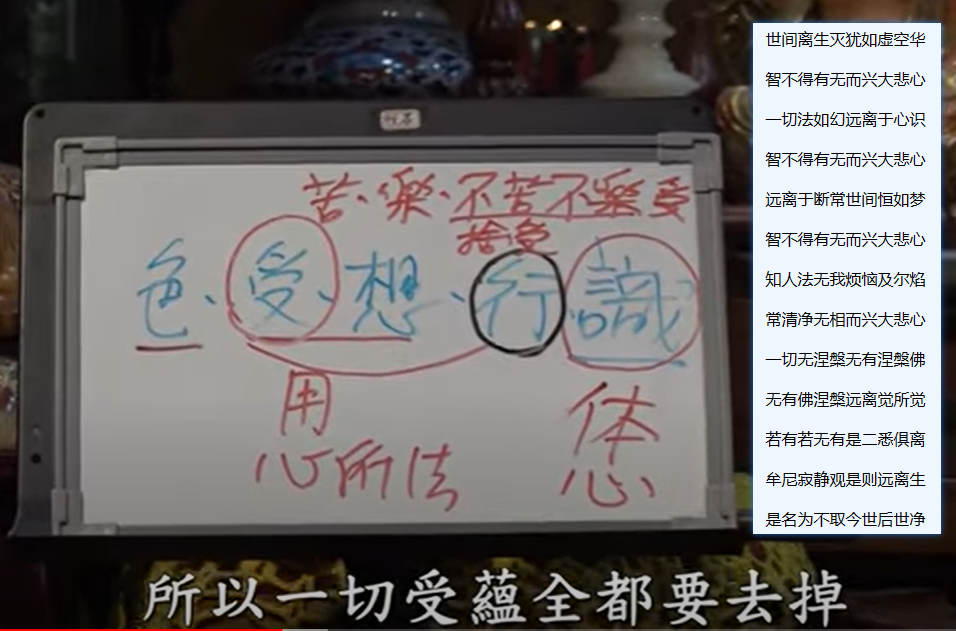 苦、樂、不苦不樂受
捨受
色、受、想、行、識
用
体
心所法
心
所以一切受蘊全都要去掉
世间离生灭犹如虚空华
智不得有无而兴大悲心
一切法如幻远离于心识
智不得有无而兴大悲心
远离于断常世间恒如梦
智不得有无而兴大悲心
知人法无我烦恼及尔焰
常清净无相而兴大悲心
一切无涅槃无有涅槃佛
无有佛涅槃远离觉所觉
若有若无有是二悉俱离
牟尼寂静观是则远离生
是名为不取今世后世净